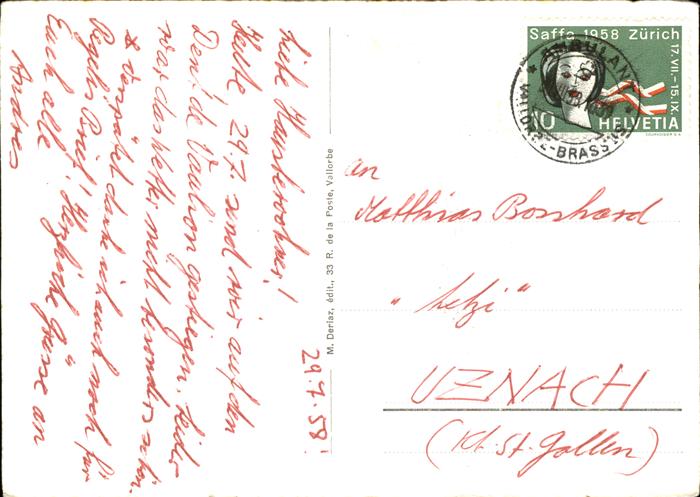 29.7.58!
Liebe Hausbewohner!
Heute, 29.7. sind wir auf den
Dent de Vaulion gestiegen. Leider
war das Wetter nicht besonders schön.
& verspätet danke ich auch noch für
Regulas Brief! Herzliche Grüsse an
Euch alle
Andres
M. Derlaz, édit., 33 R. de la Poste, Vallorbe
Saffa 1958 Zürich
17.VII.-15.IX.
10 HELVETIA
AMBULANT
an
Matthias Bosshard
"Letzi"
UZNACH
(Kt. St. Gallen)